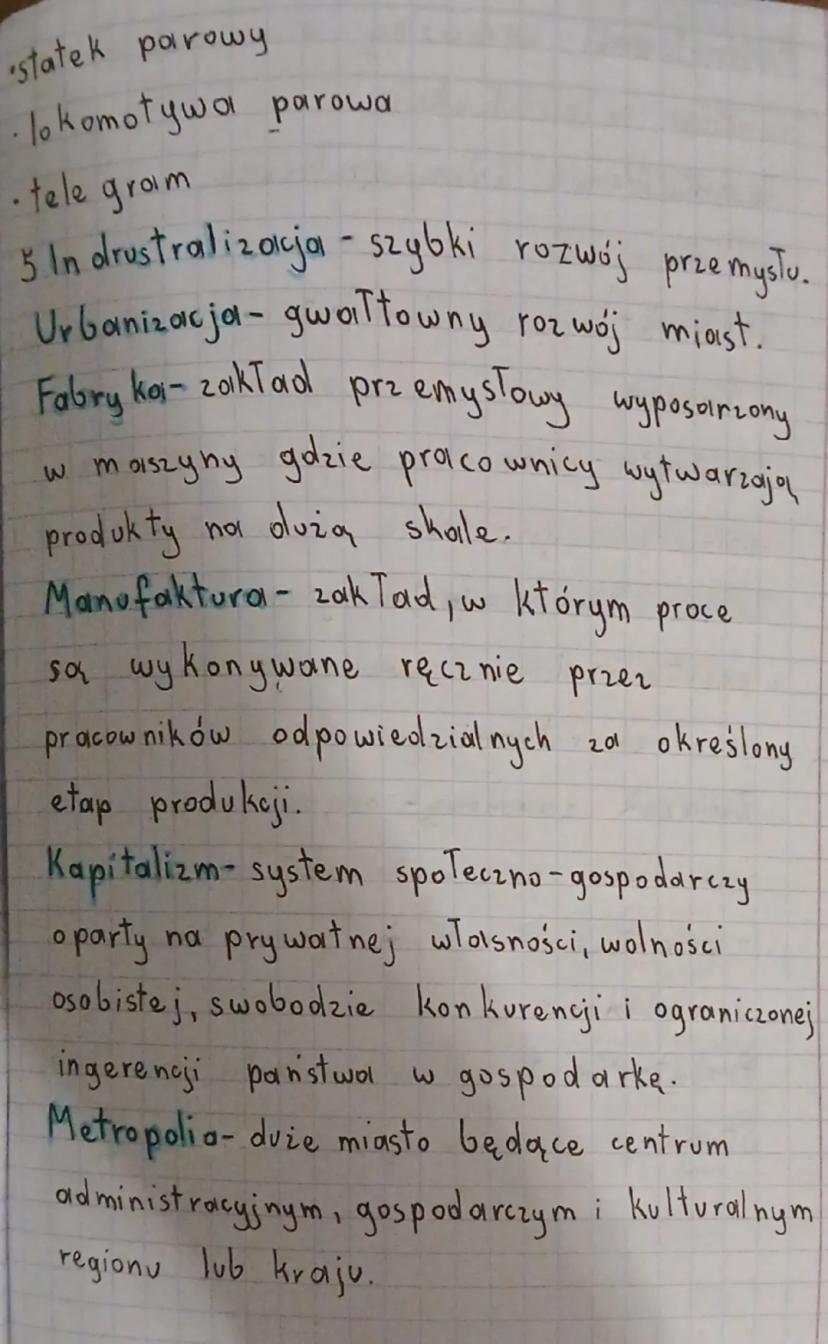 ·statek parowy
·lokomotywa parowa
·tele gram
5 Indrustralizacja - szybki rozwój przemysłu.
Urbanizacja - gwałtowny rozwój miast.
Fabryka - zakład przemysłowy wyposarzony
w maszyny gdzie pracownicy wytwarzają
produkty na dużą skale.
Manufaktura - zakład, w którym proce
są wykonywane ręcznie przez
pracowników odpowiedzialnych za określony
etap produkcji.
Kapitalizm - system społeczno-gospodarczy
oparty na prywatnej własności, wolności
osobistej, swobodzie konkurencji i ograniczonej
ingerencji państwa w gospodarkę.
Metropolia - duże miasto będące centrum
administracyjnym, gospodarczym i kulturalnym
regionu lub kraju.